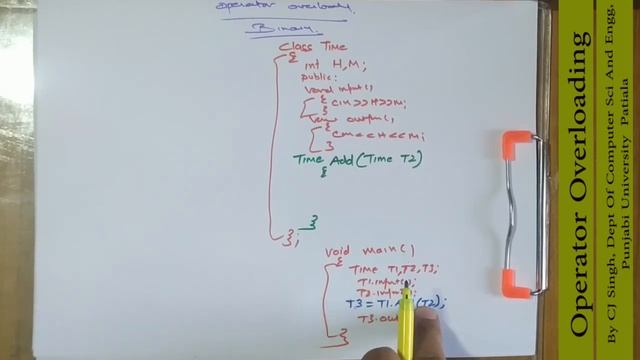 Operator overloading.
Binary.
Class Time
{
int H,M;
public:
void input()
{ cin>>H>>M;
}
void output()
{ cout<<H<<M;
}
Time Add(Time T2)
{
}
};
void main()
{
Time T1,T2,T3;
T1.input();
T2.input();
T3 = T1. (T2);
T3.
}
Operator Overloading
By CJ Singh, Dept Of Computer Sci And Engg.
Punjabi University Patiala